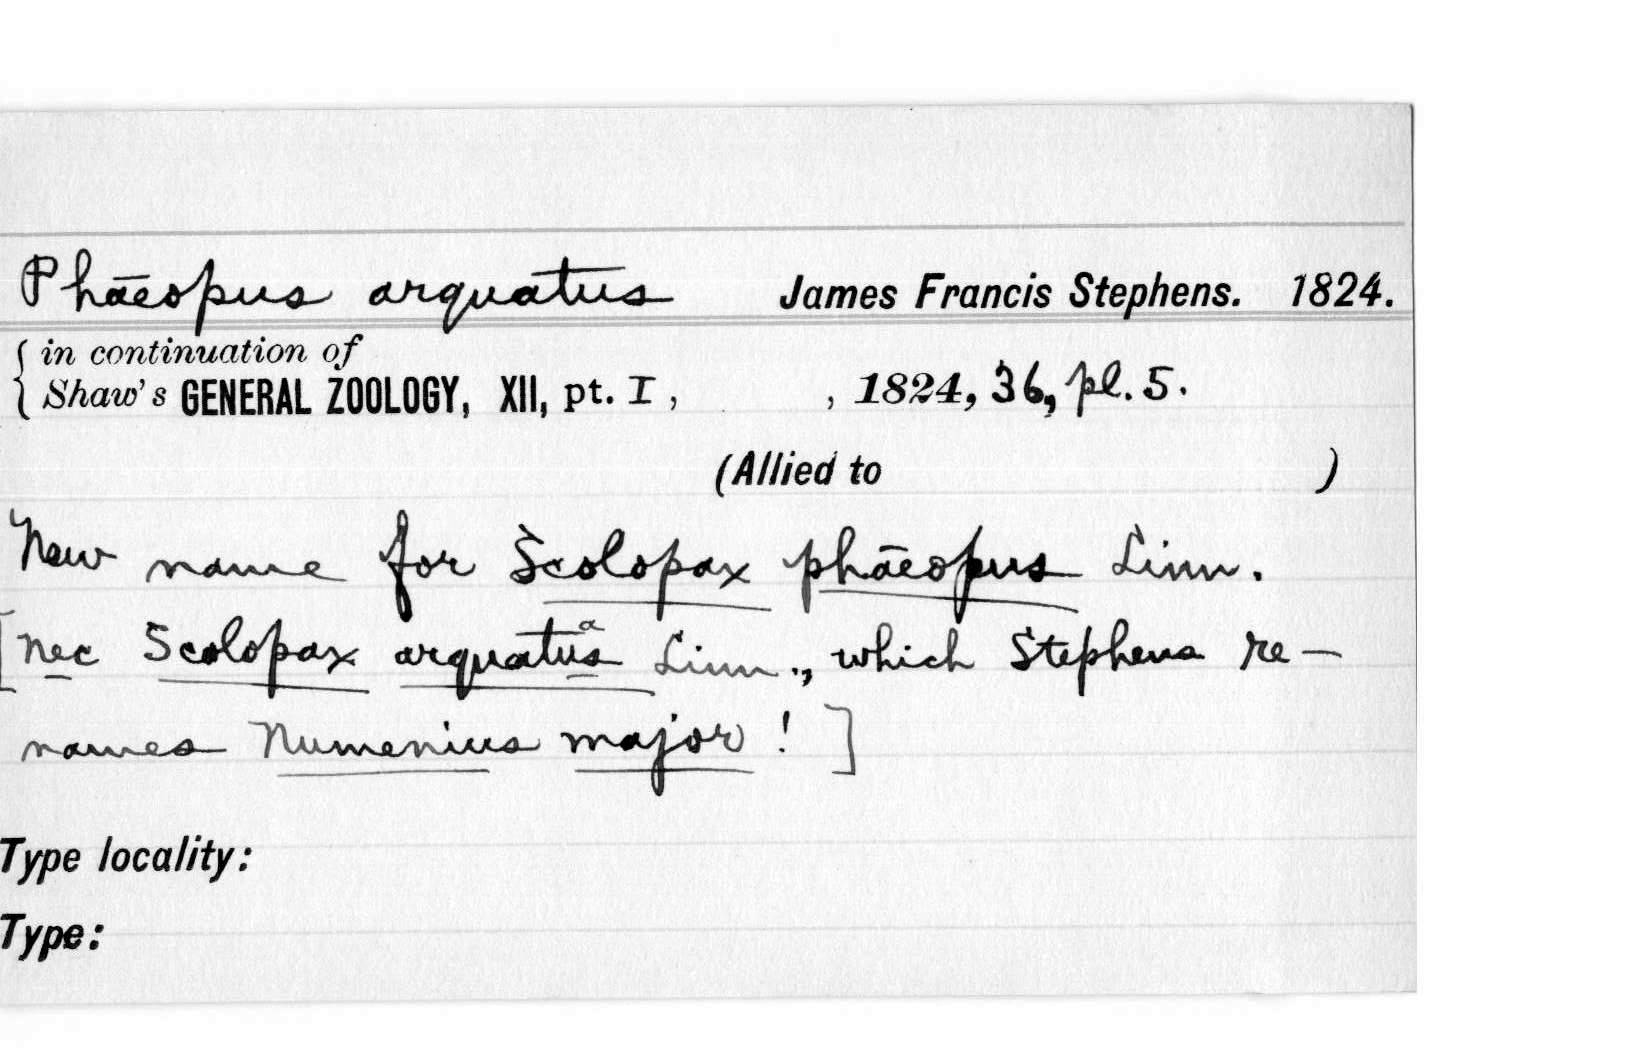 Phāeopus arquatus James Francis Stephens. 1824.
in continuation of
Shaw's GENERAL ZOOLOGY, XII, pt. I, , 1824, 36, pl. 5.
(Allied to )
New name for Scolopax phāeopus Linn.
[nec Scolopax arquatus a Linn., which Stephens re-
names Numenius major! ]
Type locality:
Type: